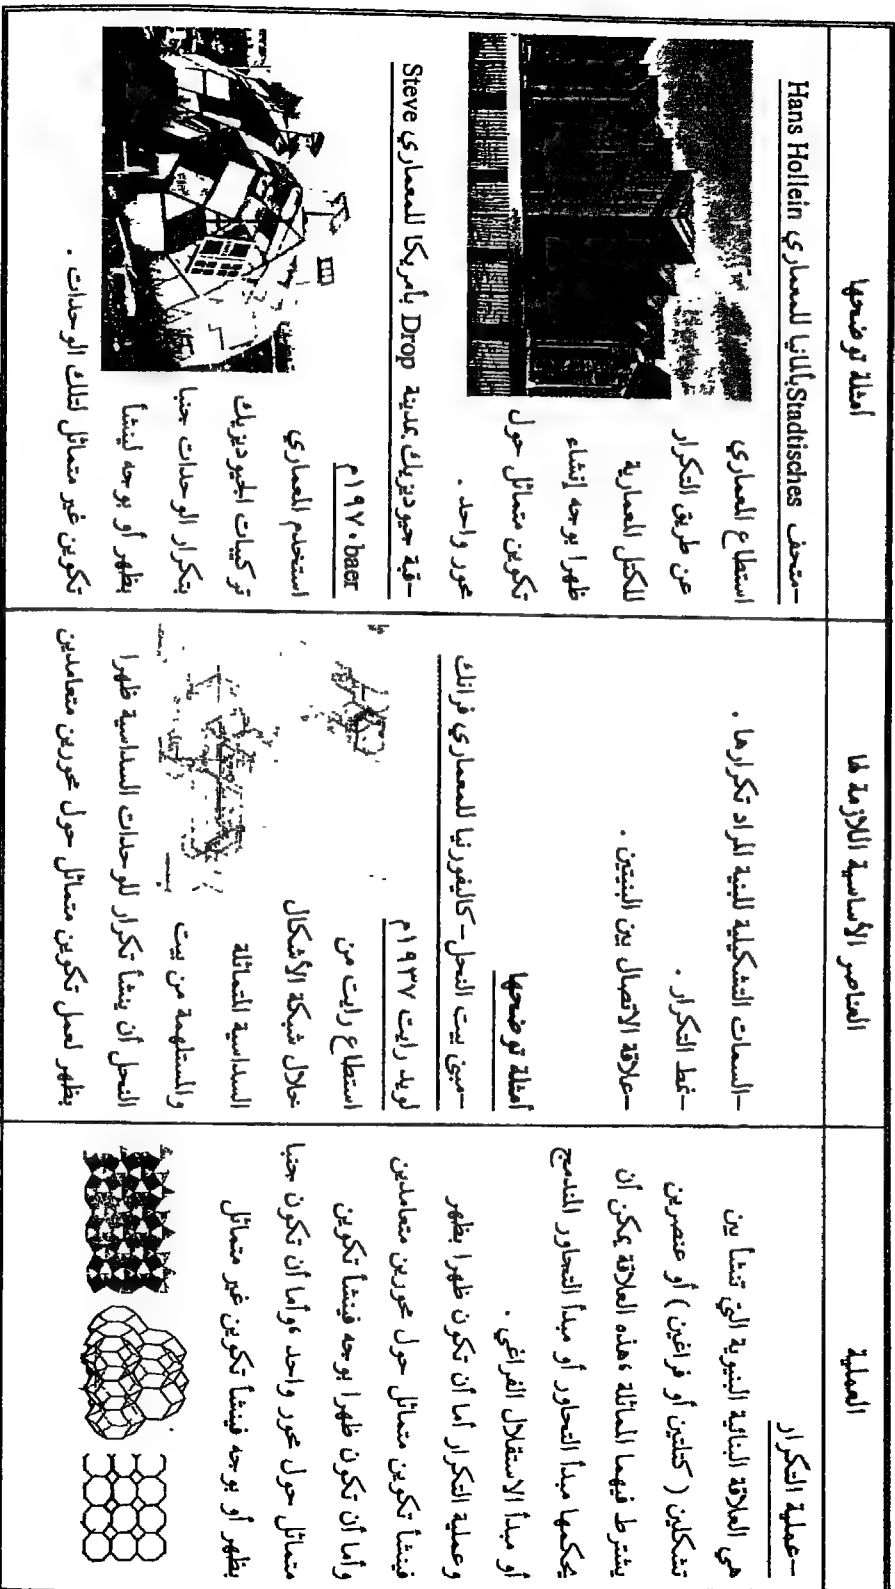 العملية
-عملية التكرار
هي العلاقة البنائية البنيوية التي تنشأ بين
تشكلين ( كتلتين أو فراغين ) أو عنصرين
يشترط فيهما المماثلة ،هذه العلاقة يمكن أن
يحكمها مبدأ التجاور أو مبدأ التجاور المندمج
أو مبدأ الاستقلال الفراغي .
وعملية التكرار أما أن تكون ظهرا بظهر
فينشأ تكوين متماثل حول محورين متعامدين
وأما أن تكون ظهرا بوجه فينشأ تكوين
متماثل حول محور واحد ،وأما أن تكون جنبا
بظهر أو بوجه فينشأ تكوين غير متماثل
العناصر الأساسية اللازمة لها
-السمات التشكيلية للبنية المراد تكرارها .
-نمط التكرار .
-علاقة الاتصال بين البنيتين .
أمثلة توضحها
-مبنى بيت النحل-كاليفورنيا للمعماري فرانك
لويد رايت ١٩٣٧م
استطاع رايت من
خلال شبكة الأشكال
السداسية المتماثلة
والمستلهمة من بيت
النحل أن ينشأ تكرار للوحدات السداسية ظهرا
بظهر لعمل تكوين متماثل حول محورين متعامدين
أمثلة توضحها
-متحف Stadtisches بألمانيا للمعماري Hans Hollein
استطاع المعماري
عن طريق التكرار
للكتل المعمارية
ظهرا بوجه إنشاء
تكوين متماثل حول
محور واحد .
-قبة جيوديزيك بمدينة Drop بأمريكا للمعماري Steve
baer ١٩٧٠م
استخدم المعماري
تركيبات الجيوديزيك
بتكرار الوحدات جنبا
بظهر أو بوجه لينشأ
تكوين غير متماثل لتلك الوحدات .